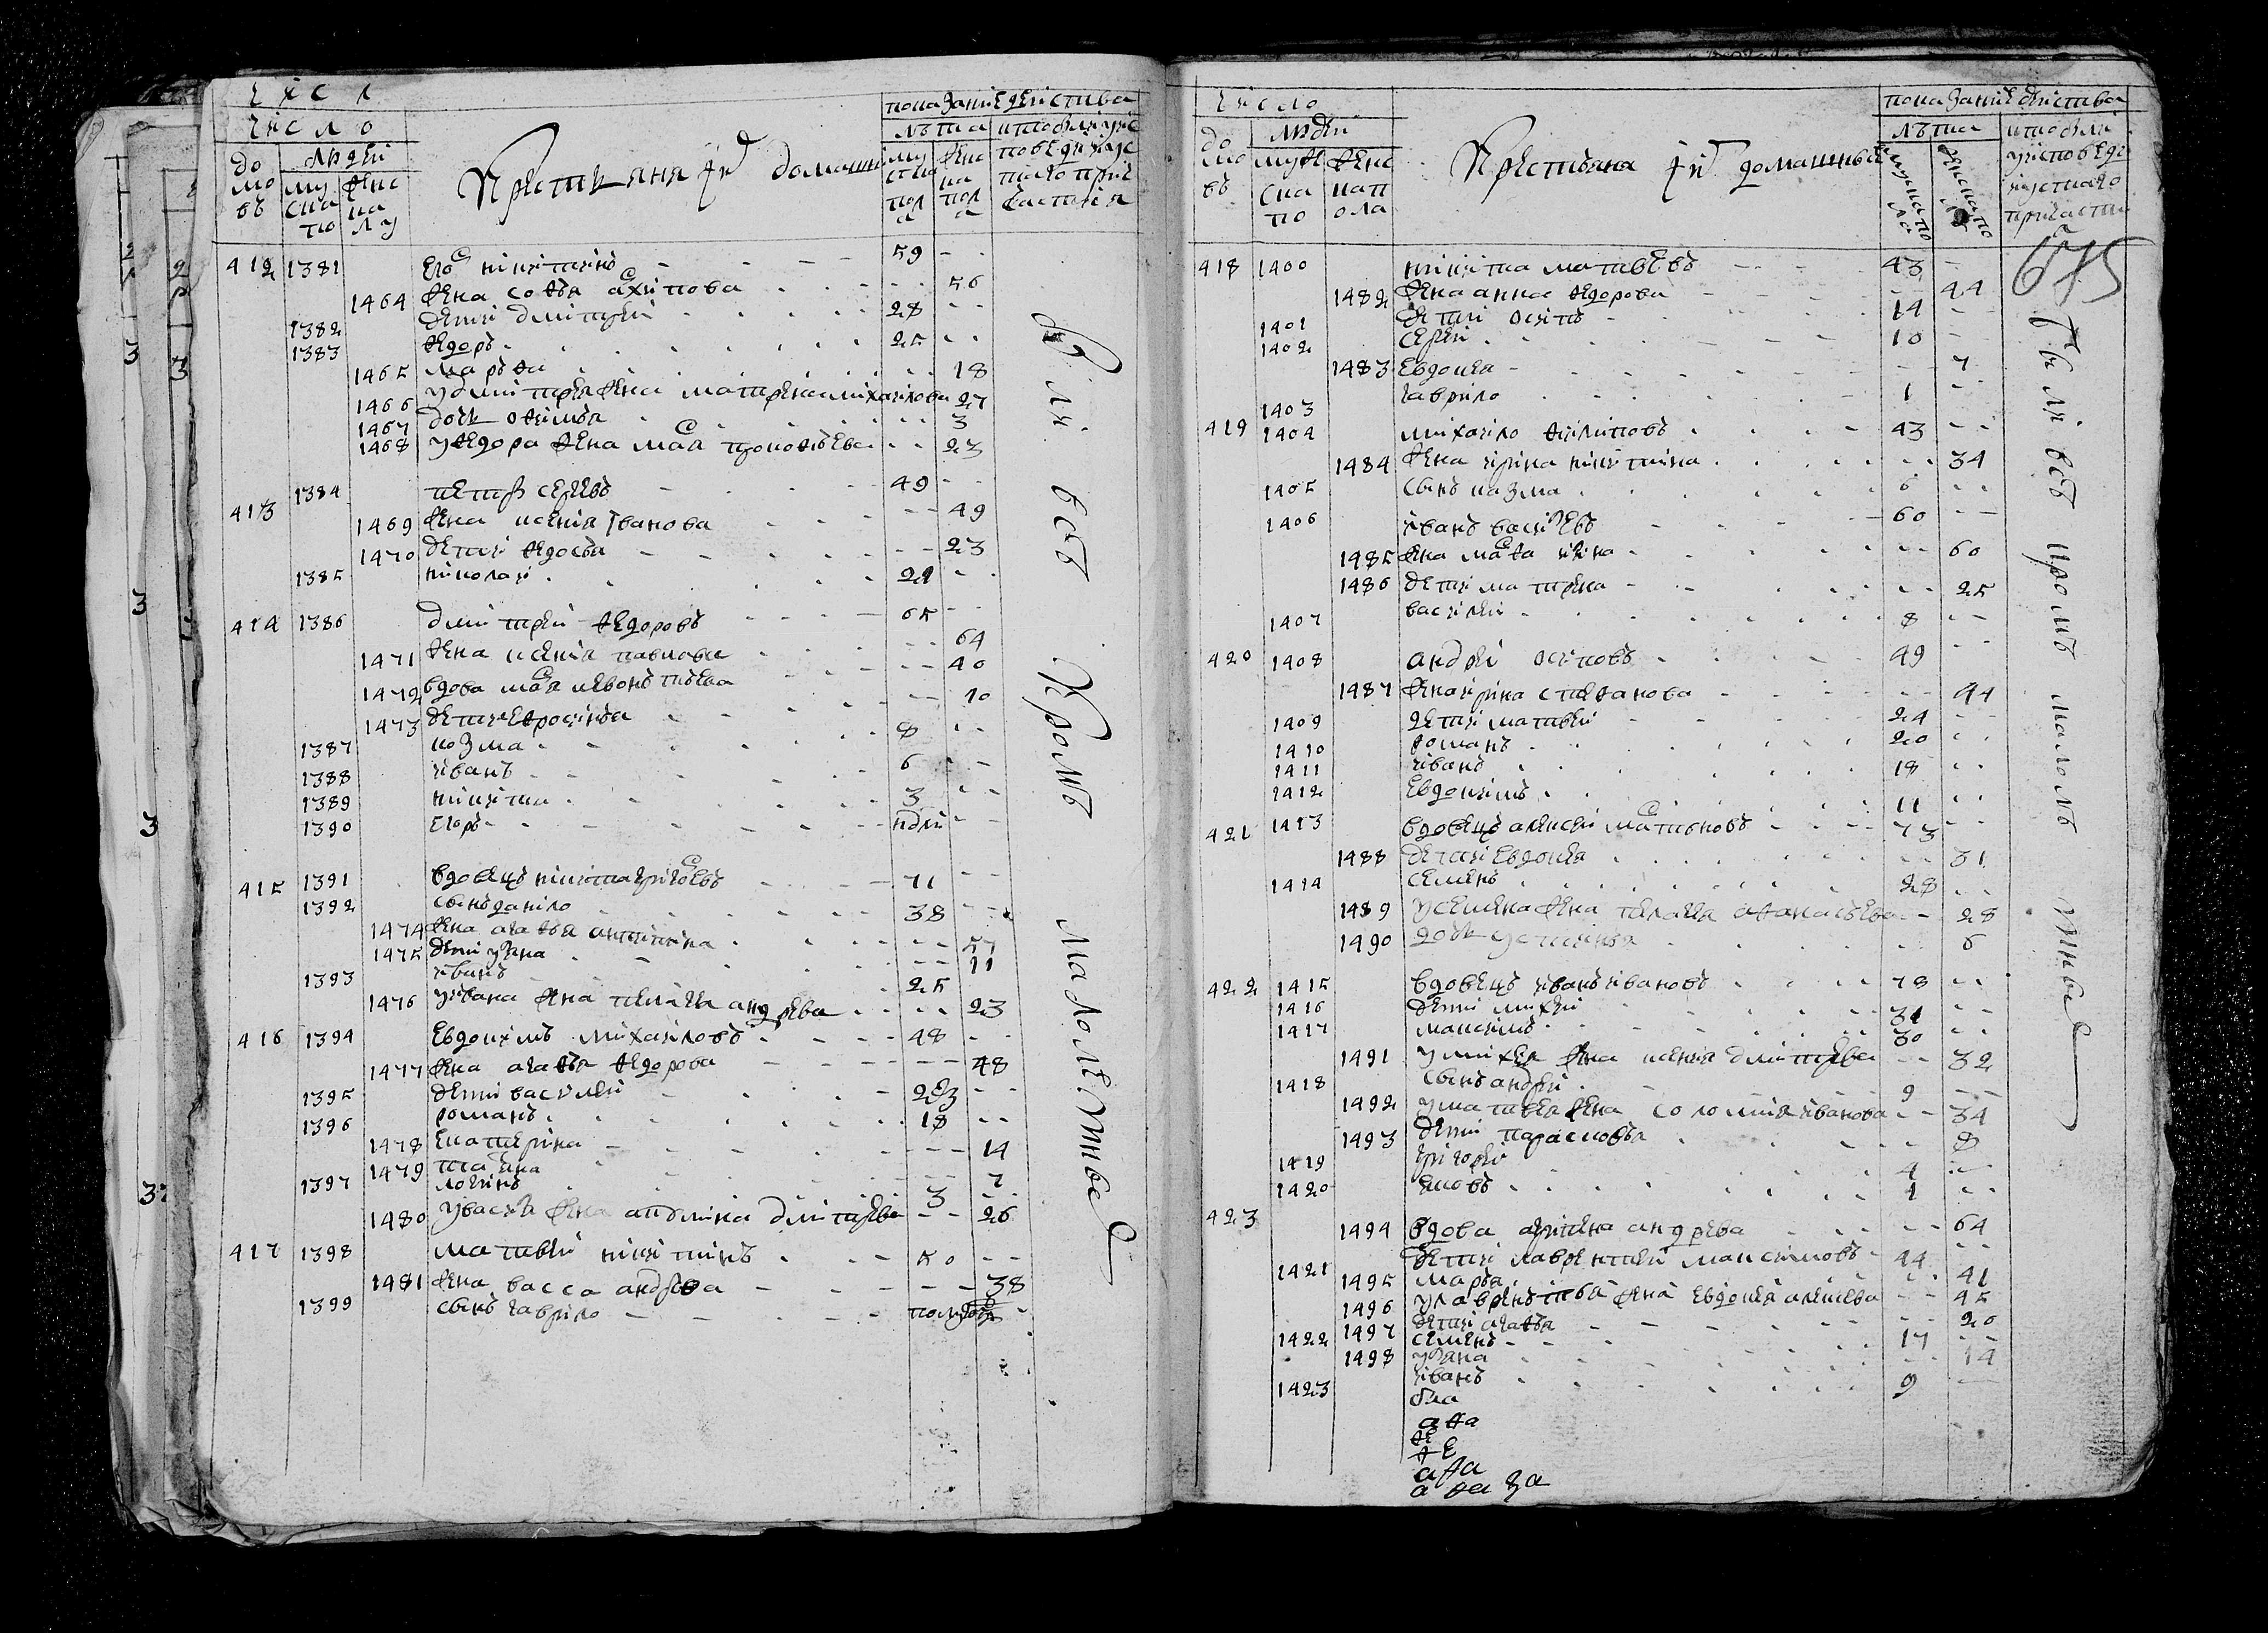 число
домовъ людеи мускаго полу женска полу
Крестьяня іихъ домашни
показание действа
лѣта
муска пола женска пола
412 1381 его никитинъ 59
1464 жена софья архипова 56
1382 дети дмитреи 28
1383 федоръ 25
1465 марфа 18
1466 у дмитрея жена матрена михаилова 27
1467 дочь офимья 3
1468 у федора жена марья прокофьева 23
413 1384 петръ сергевъ 49
1469 жена ксенія іванова 49
1470 дети федосья 23
1385 николаи 21
414 1386 дмитреи федоровъ 65
1471 жена ксенія павлова 64
1472 вдова марья левонтьева 40
1473 дети ефросинья 10
1387 козма 8
1388 иванъ 6
1389 никита 3
1390 егоръ
415 1391 вдовецъ никита григоревъ 71
1392 сынъ данило 38
1474 жена агафья антипина 57
1475 дети ульяна 11
1393 иванъ 25
1476 у ивана жена пелагея андрева 23
416 1394 евдокимъ михаиловъ 48
1477 жена агафья федорова 48
1395 дети василеи 23
1396 романъ 18
1478 екатерина 14
1479 татьяна 7
1397 логинъ 3
1480 у васил жена акулина дмитрева 26
417 1398 матвеи никитинъ 50
1481 жена васса андрева 38
1399 сынъ гаврило полугода
Были всѣ Кромѣ малолетныхъ
число
домовъ людеи мужска по женска пола
Крестьяна іихъ домашныя
показание действа
лѣта
675
418 1400 никита матвеевъ 43
1482 жена анна федорова 44
1401 дети осипъ 14
1402 сергеи 10
1483 евдокея 7
1403 гаврило 1
419 1404 михаило филиповъ 43
1484 жена ирина никитина 34
1405 сынъ казма 6
1406 иванъ василевъ 60
1485 жена марфа 60
1486 дети матрена 25
1407 василеи 8
420 1408 андреи осиповъ 49
1487 жена ирина стефанова 44
1409 дети матвеи 24
1410 романъ 20
1411 иванъ 18
1412 евдокимъ 11
421 1413 вдовецъ алексеи мартиновъ 73
1488 дети евдокея 31
1414 семенъ 28
1489 у семена жена пелагея афанасьева 28
1490 дочь устинья 6
422 1415 вдовецъ иванъ ивановъ 78
1416 дети михеи 31
1417 максимъ 30
1491 у михея жена ксения дмитрева 32
1418 сынъ андреи 9
1492 у матвея жена соломия иванова 34
1493 дети парасковья 8
1419 григореи 4
1420 яковъ 1
423 1494 вдова агрипена андрева 64
1421 дети лаврентеи максимовъ 44
1495 марья 41
1496 у лаврентья жена евдокея алексева 45
1497 дети агафья 20
1422 семенъ 17
1498 ульяна 14
1423 иванъ 9
Были всѣ кромѣ малолѣтныхъ